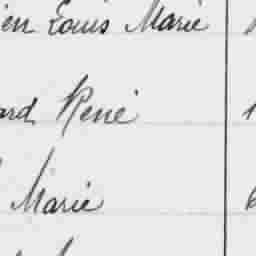 ien Louis Marie
ard René
Marie